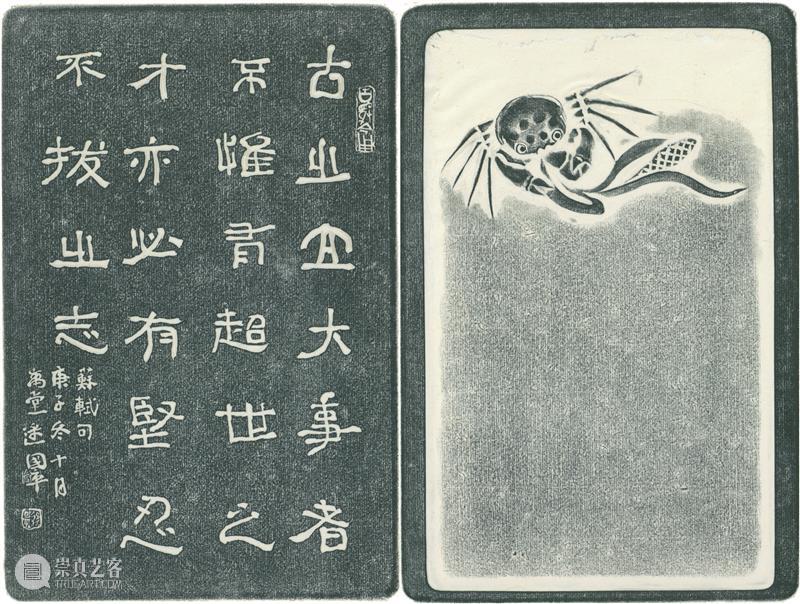 古之立大事者
不惟有超世之
才亦必有堅忍
不拔之志
蘇軾句
庚子冬十月
崇真艺客